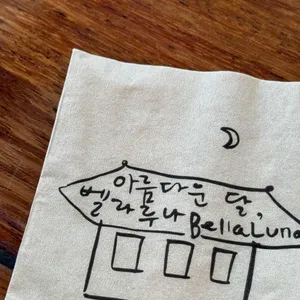 아름다운 달,
벨라루나 BellaLuna